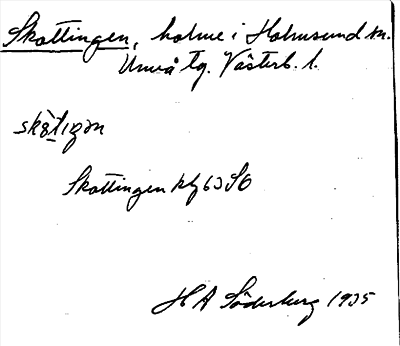 Skottingen, holme i Holmsund sn.
Umeå tg. Västerb. l.
Skottingen kbl 63 SO
H A Söderberg 1935